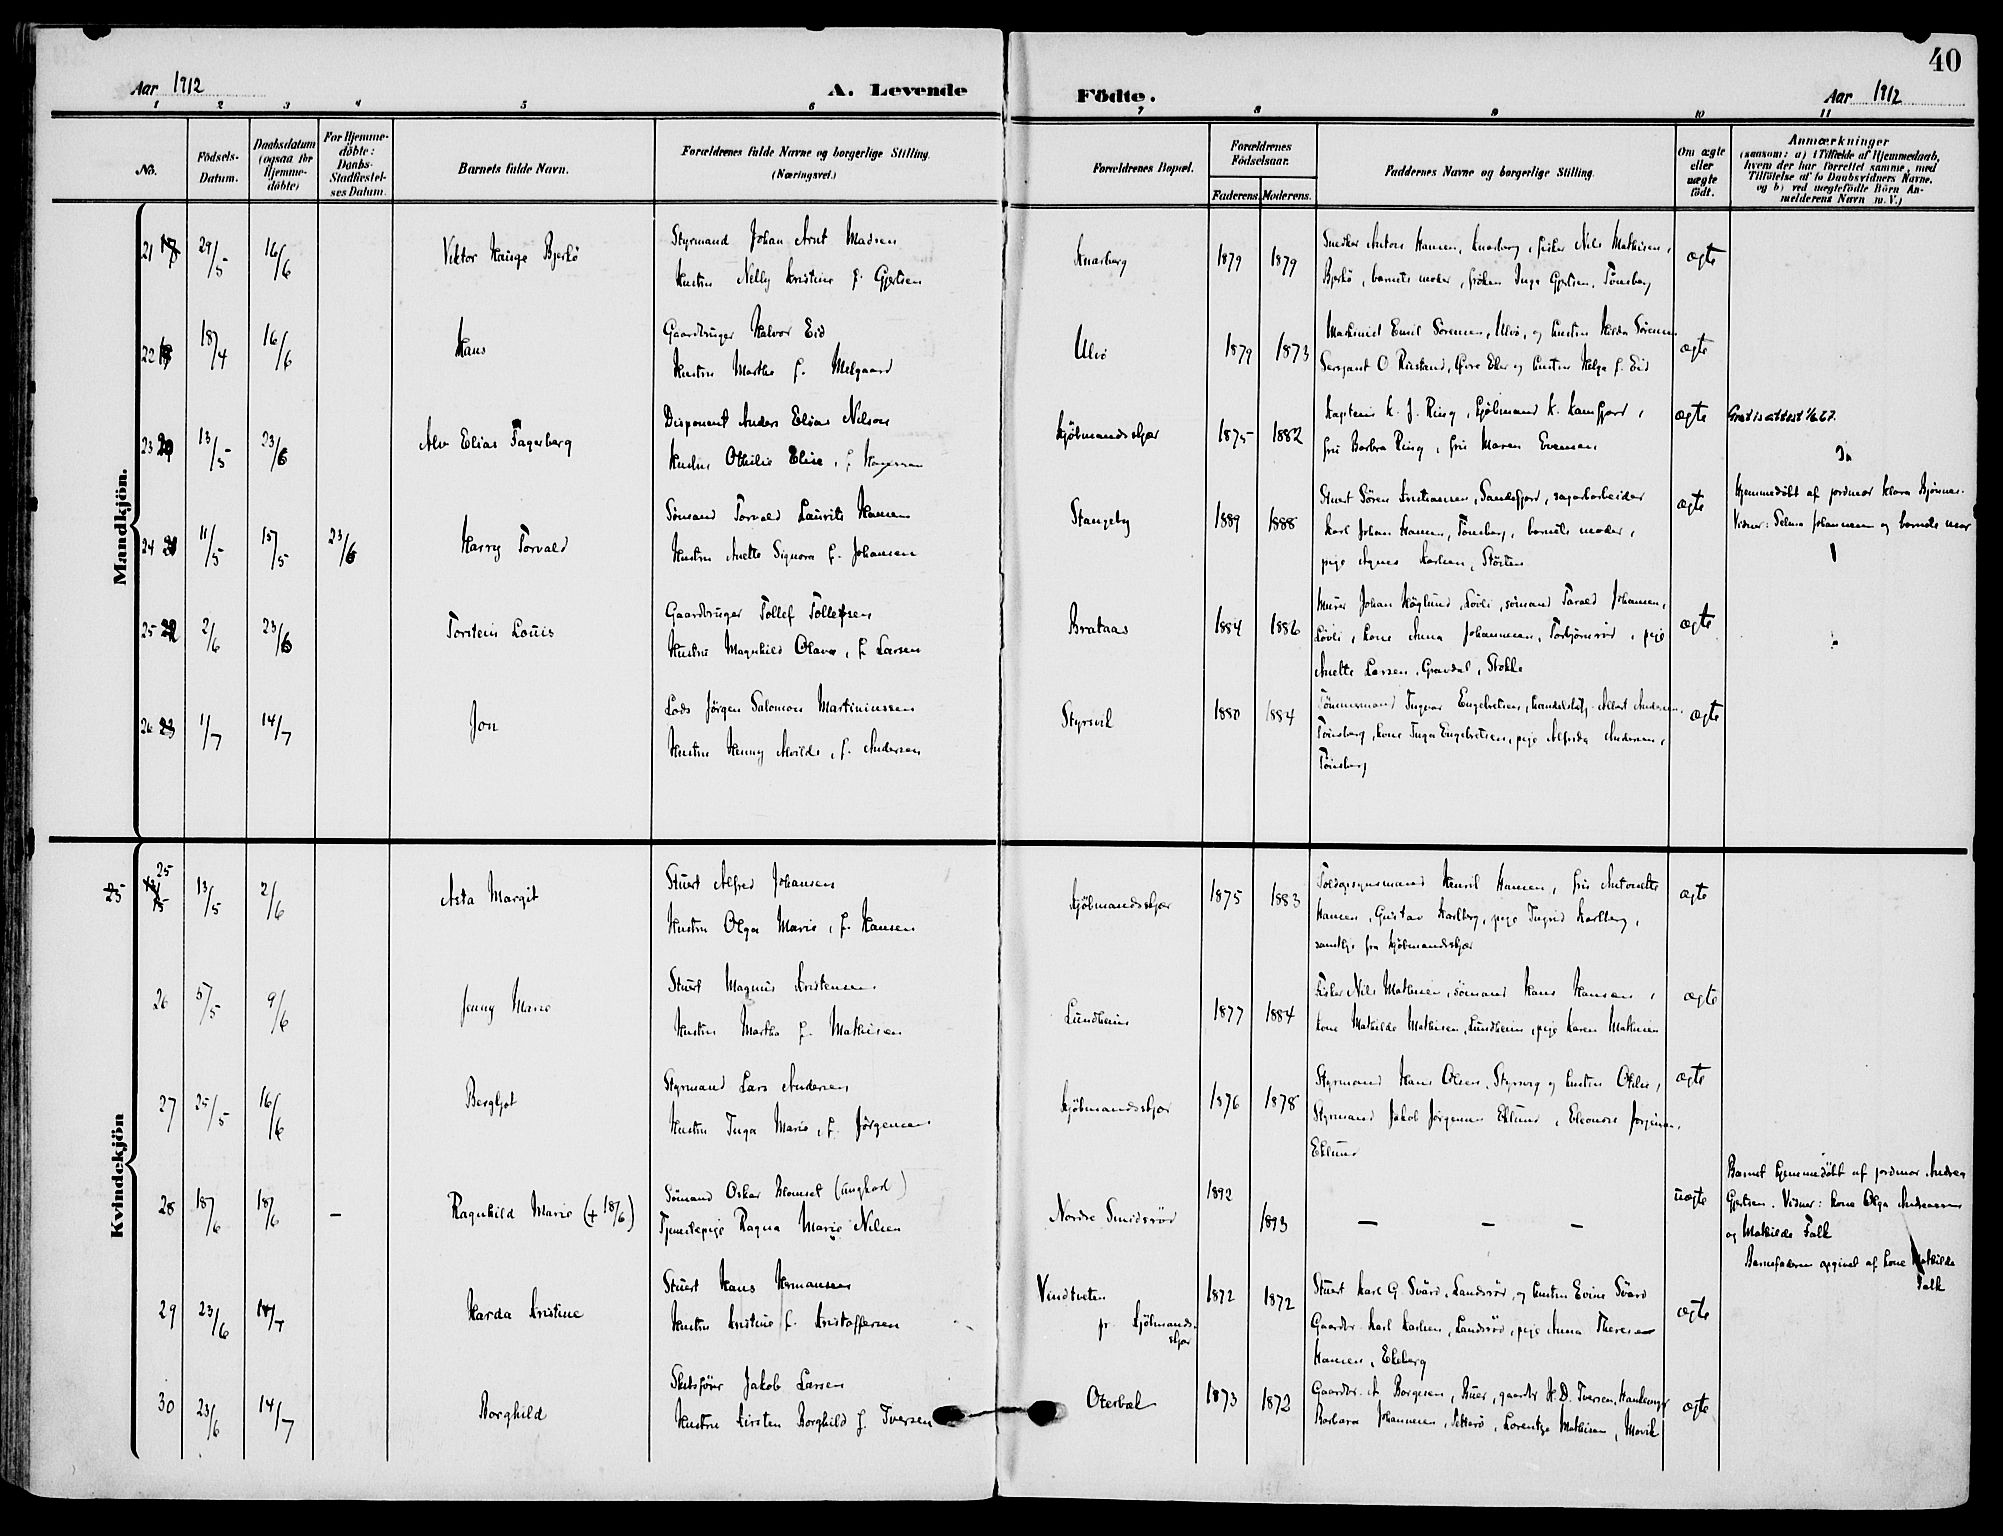 40
Aar 1912
A. Levende
Födte.
Aar 1912
1 2 3 4 5 6 7 8 9 10 11
No.
Födsels-
Datum.
Daabsdatum
(ogsaa for
Hjemme-
döbte)
For Hjemme-
döbte:
Daabs-
Stadfæstel-
ses Datum.
Barnets fulde Navn.
Forældrenes fulde Navne og borgerlige Stilling.
(Næringsvei.)
Forældrenes Bopæl.
Forældrenes
Födselsaar.
Faderens. Moderens.
Faddernes Navne og borgerlige Stilling.
Om ægte
eller
uægte
födt.
Anmærkninger
(saasom: a) i Tilfælde af Hjemmedaab,
hvem der har forrettet samme, med
Tilföielse af to Daabsvidners Navne.
og b) ved uægtefödte Börn An-
melderens Navn m. V.)
Mandkjön.
21 29/5 16/6 Viktor Hauge Bjerkö
Styrmand Johan Arnt Madsen
Hustru Nelly Kristine f. Gjertsen
Knarberg 1879 1879
Snedker Anton Hansen, Knarberg, fisker Nils Mathisen,
Bjerkö, barnets moder, fröken Inga Gjertsen, Tönsberg
ægte
22 18/4 16/6 Hans
Gaardbruger Halvor Eid
Hustru Marthe f. Melgaard
Ulvö 1879 1873
Maskinist Emil Sörensen, Ulvö, og hustru Hilda Sörensen
Sergeant O. Rustand, Övre Eker og hustru Helga f. Eid
ægte
23 13/5 23/6 Alv Elias Fagerberg
Disponent Anders Elias Nilsen
Hustru Othilie Elise, f.
Kjöbmandskjær 1875 1882
Kaptein K. J. Ring, kjöbmand K. Kamfjord,
fru Barbra Ring, fru Maren Evensen
ægte
Gratisattest 1/6 67.
24 11/5 15/5 23/6 Harry Torvald
Sömand Torvald Laurits Hansen
Hustru Anette Signora f. Johansen
Stangeby 1889 1888
Stuert Sören Kristiansen, Sandefjord, sagarbeider
Karl Johan Hansen, Tönsberg, barnets moder,
pige Agnes Karlsen, Slotten
ægte
Hjemmedöbt af jordmor Klara Bjönnes.
Vidner: Selma Johannesen og barnets mor
25 2/6 23/6 Torstein Louis
Gaardbruger Tollef Tollefsen
Hustru Magnhild Olava, f. Larsen
Brataas 1884 1886
Murer Johan Höglund, Lövli, sömand Torvald Johansen,
Lövli, kone Anna Johannesen, Torbjörnröd, pige
Anette Larsen, Gravdal, Stokke
ægte
26 1/7 14/7 Jon
Lods Jörgen Salomon Martiniussen
Hustru Henny Alvilde, f. Andersen
Styrsvik 1880 1884
Tömmermand Ingvar Engebretsen, handelsbetj. Albert Andersen
Tönsberg, kone Inga Engebretsen, pige Alfrida Andersen,
Tönsberg
ægte
Kvindekjön
25 13/5 2/6 Asta Margit
Stuert Alfred Johansen
Hustru Olga Marie, f. Hansen
Kjöbmandskjær 1875 1883
Toldopsynsmand Henrik Hansen, fru Antonette
Hansen, Gustav Karlberg, pige Ingrid Karlberg,
samtlige fra Kjöbmandskjær
ægte
26 5/5 9/6 Jenny Marie
Stuert Magnus Kristensen
Hustru Martha f. Mathisen
Lundheim 1877 1884
Fisker Nils Mathisen, sömand Hans Hansen,
kone Mathilde Mathisen, Lundheim, pige Karen Mathisen
ægte
27 25/5 16/6 Bergljot
Styrmand Lars Andersen
Hustru Inga Marie, f. Jörgensen
Kjöbmandskjær 1876 1878
Styrmand Hans Olsen, Styrsvig og hustru Otilie,
Styrmand Jakob Jörgensen Eklund, Eleonore Jörgensen,
Eklund
ægte
28 18/6 18/6 — Ragnhild Marie (+ 18/6)
Sömand Oskar Klemset (ungkarl)
Tjenestepige Ragna Marie Nilsen
Nordre Smidsröd 1892 1893
— — —
uægte
Barnet hjemmedöbt af jordmor Andrea
Gjertsen. Vidner: kone Olga Andreassen
og Mathilde Falk
Barnefaderen opgivet af kone Mathilde
Falk
29 23/6 14/7 Harda Kristine
Stuert Hans Hermansen
Hustru Kristine f. Kristoffersen
Vindtveten
pr. Kjöbmands-
skjær
1872 1872
Stuert Karl G. Svärd, Landsröd, og hustru Evine Svärd
Gaardbr. Karl Karlsen, Landsröd, pige Anna Therese
Hansen, Ekeberg
ægte
30 23/6 14/7 Borghild
Skibsförer Jakob Larsen
Hustru Kirsten Borghild f. Iversen
Oterbæk 1873 1872
Gaardbr. A. Borgesen, Buer, gaardbr. H. D. Iversen,
Barbara Johannesen, Lorentze Mathisen, Movik
ægte